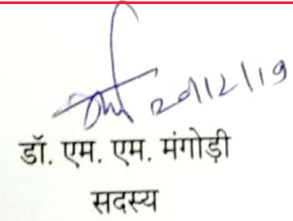 20/12/19
डॉ. एम. एम. मंगोड़ी
सदस्य